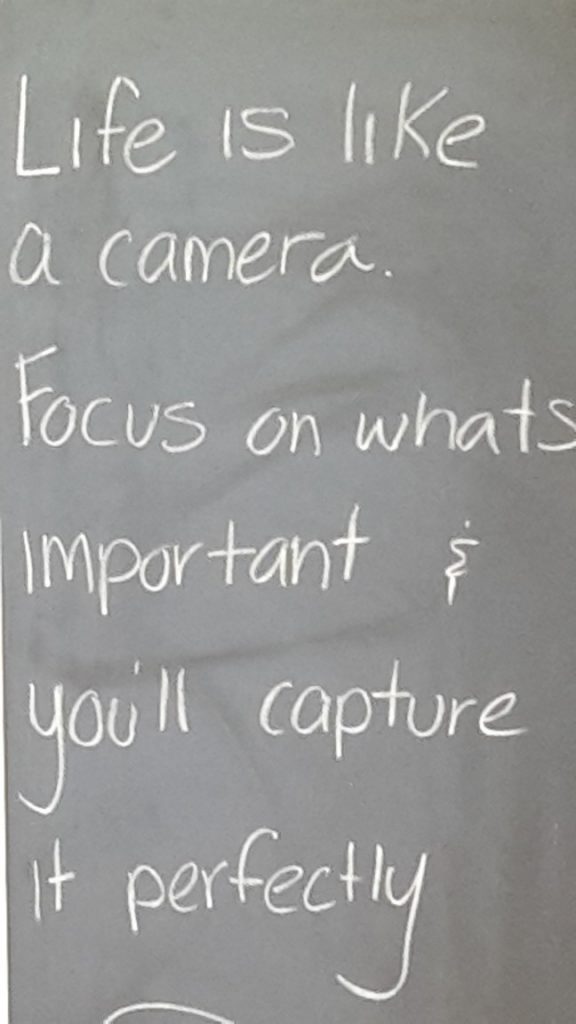 Life is like
a camera.
Focus on whats
important &
you'll capture
it perfectly